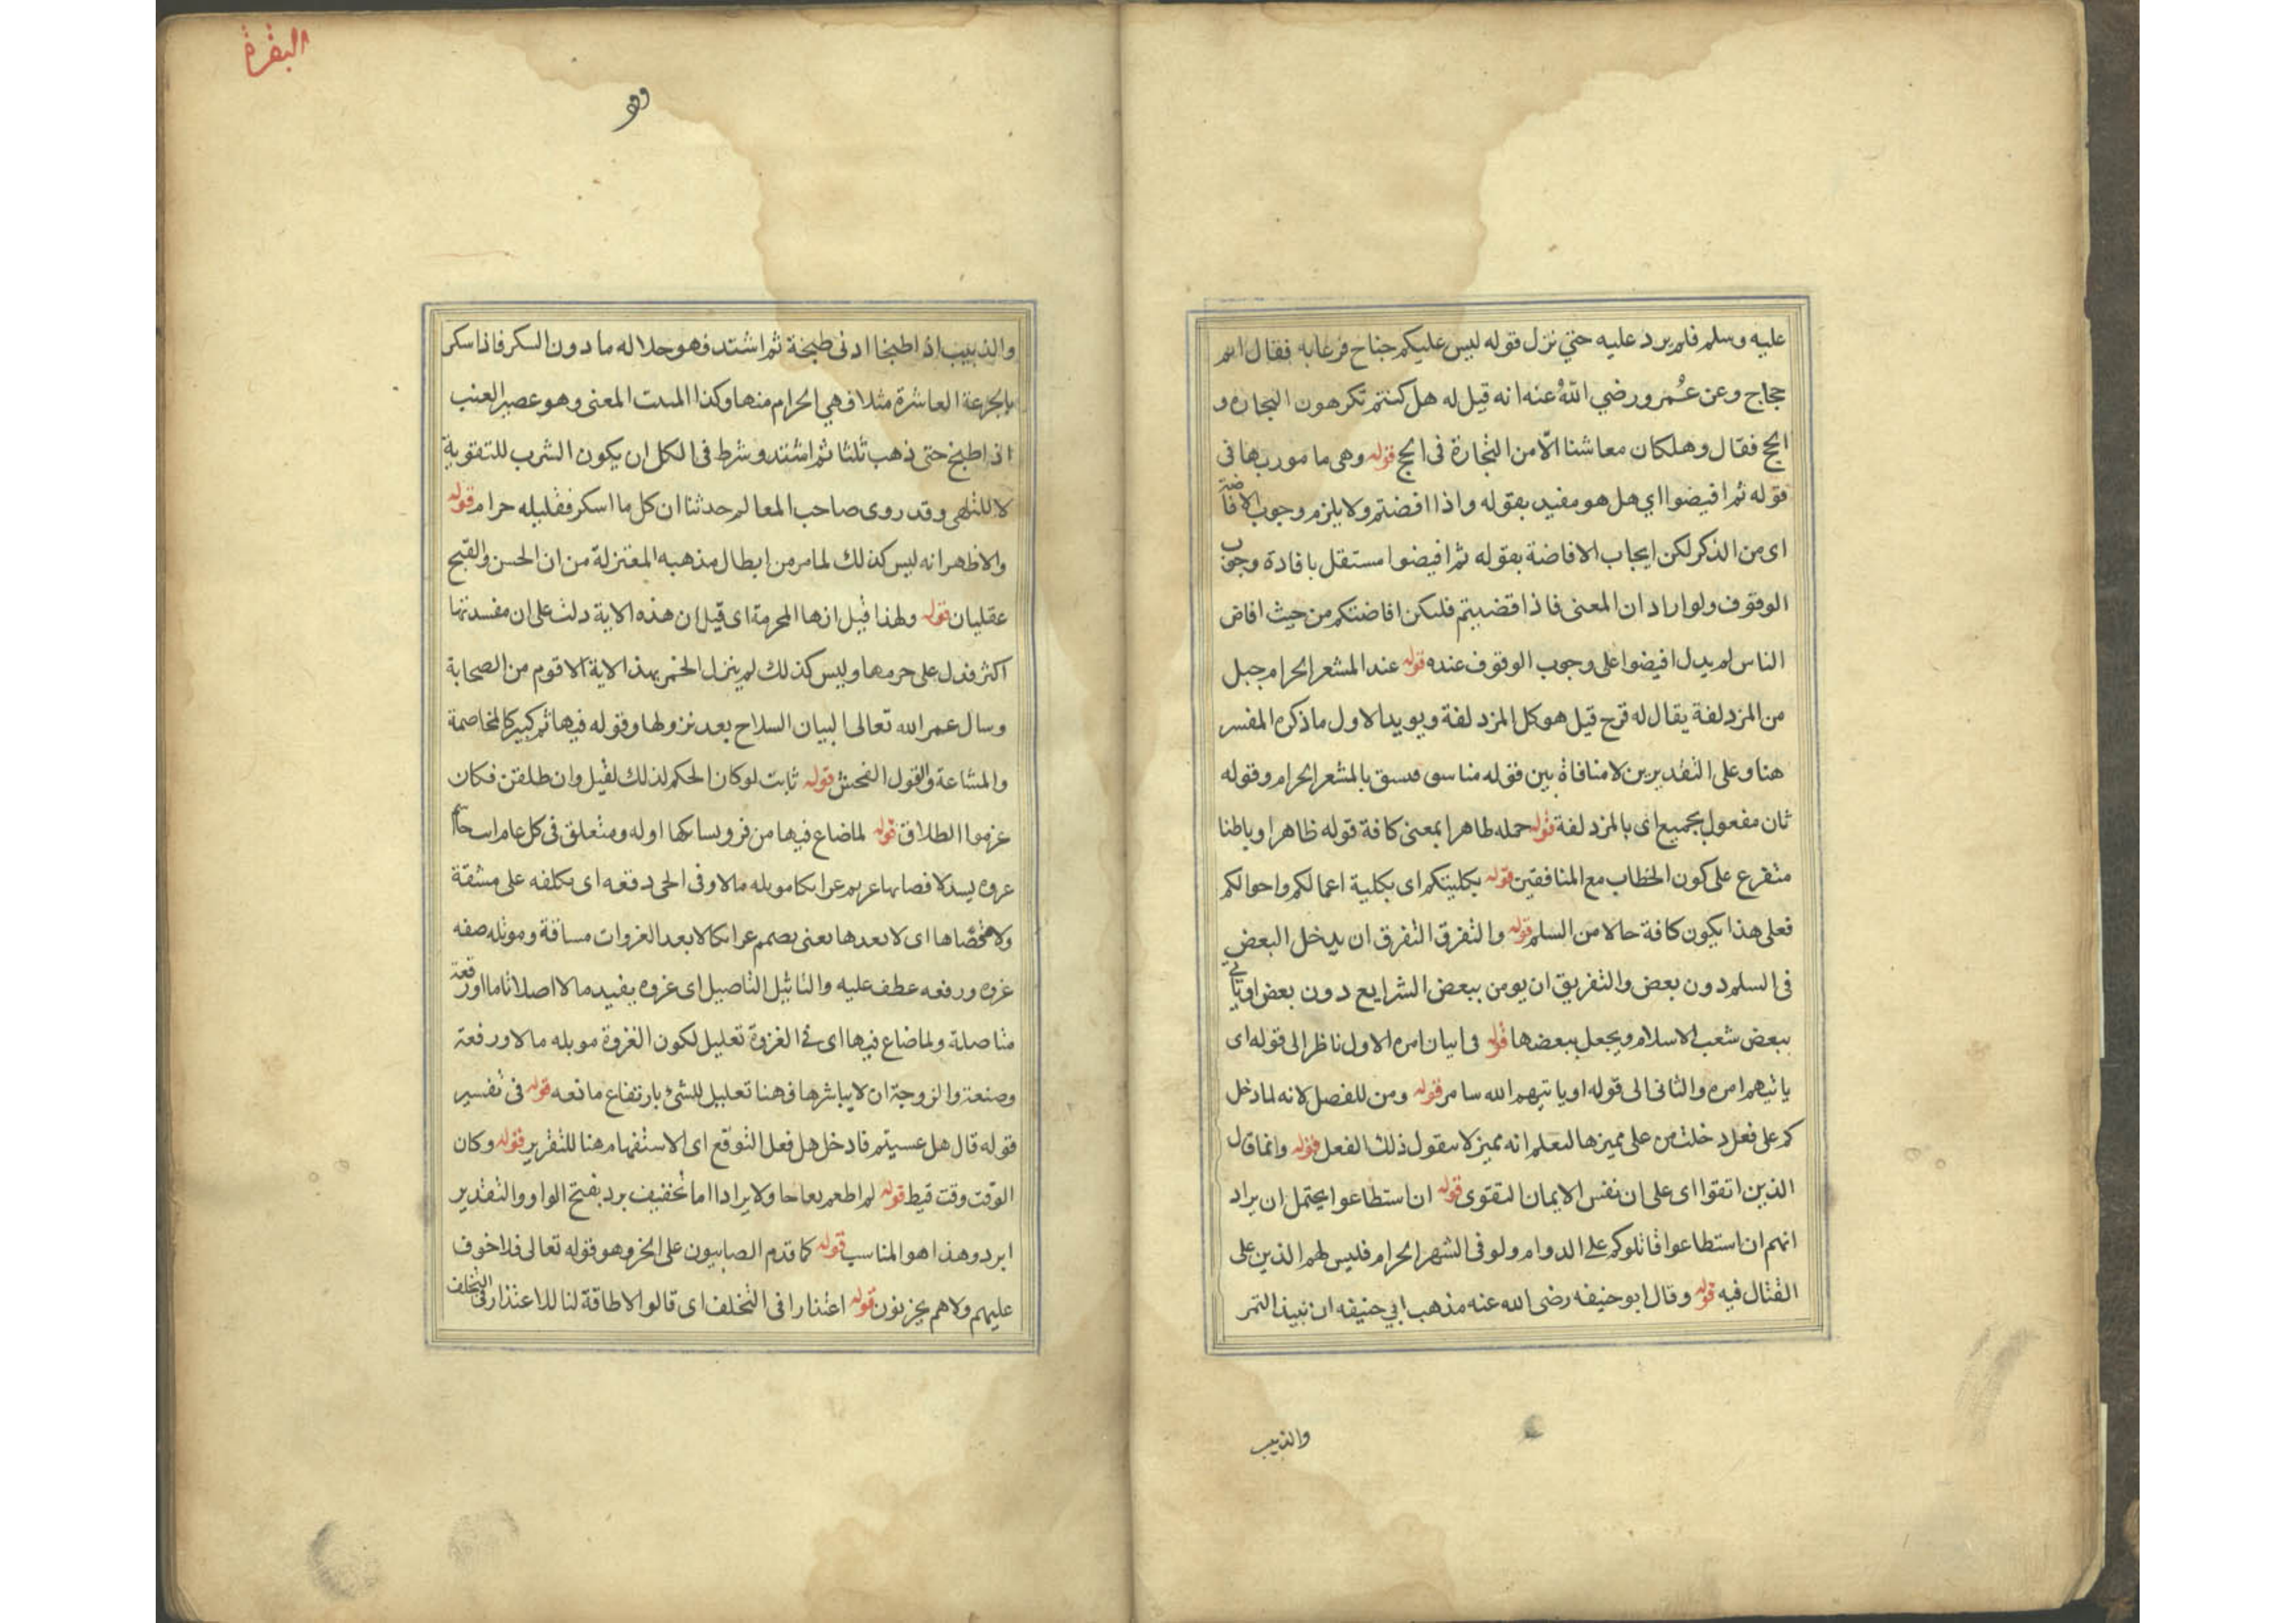 عليه وسلم فلم يرد عليه حتي نزل قوله ليس عليكم جناح فدعا به فقال انتم
حجاج وعن عمر ورضي الله عنه انه قيل له هل كنتم تكرهون التجارة و
الحج فقال وهلكان معاشنا الّا من التجارة فى الحج قوله وهى مامور بها فى
قوله ثم افيضوا اي هل هو مفيد بقوله واذا افضتم ولا يلزم وجوب الافاضة
اى من الذكر لكن ايجاب الافاضة بقوله ثم افيضوا مستقل بافادة وجوب
الوقوف ولو اراد ان المعنى فاذا قضيتم فليكن افاضتكم من حيث افاض
الناس لم يدل افيضوا على وجوب الوقوف عنده قوله عند المشعر الحرام جبل
من المزدلفة يقال له قزح قيل هو كل المزدلفة ويويد الاول ماذكره المفسر
هنا وعلى التقديرين لا منافاة بين قوله بالمشعر الحرام وقوله
ثان مفعول بجميع اى بالمزدلفة قوله حمله طاهرا بمعنى كافة قوله ظاهرا وباطنا
متفرع على كون الخطاب مع المنافقين قوله بكليتكم اى بكلية اعمالكم واحوالكم
فعلى هذا يكون كافة حالا من السلم قوله والتفرق التفرق ان يدخل البعض
فى السلم دون بعض والتفريق ان يومن ببعض الشرايع دون بعض او ياتي
ببعض شعب الاسلام ويجعل ببعضها قوله فى اتيان امره الاول ناظر الى قوله اى
ياتيهم امره والثانى الى قوله او ياتيهم الله سامر قوله ومن للفصل لانه لما دخل
كم على فعل دخلت من على مميزها لتعلم انه مميز لا مفعول ذلك الفعل قوله وانما قال
الذين اتقوا اى على ان نفس الايمان التقوى قوله ان استطاعوا يحتمل ان يراد
انهم ان استطاعوا قاتلوكم على الدوام ولو فى الشهر الحرام فليس لهم الذين على
القتال فيه قوله وقال ابو حنيفه رضى الله عنه مذهب ابي حنيفه ان نبيذ التمر
والذبيب
البقرة
والذبيب اذا طبخا ادنى طبخة ثم اشتد فهو حلاله ما دون السكر فاذا سكر
بالجرعة العاشرة مثلا فهي الحرام منها وكذا المعنى وهو عصير العنب
اذا طبخ حتى ذهب ثلثا ثم اشتد وشرط فى الكل ان يكون الشرب للتقوية
لا للتلهى وقد روى صاحب المعالم حدثنا ان كل ما اسكر فقليله حرام قوله
والاظهر انه ليس كذلك لما مر من ابطال مذهبه المعتزلة من ان الحسن والقبح
عقليان قوله ولهذا قيل انها المحرمة اى قيل ان هذه الاية دلت على ان مفسدتها
اكثر فدل على حرمها وليس كذلك لم ينزل الخمر بهذ الاية الا قوم من الصحابة
وسال عمر الله تعالى لبيان السلاح بعد نزولها وقوله فيها ثم كبير كالمخاصمة
والمشاعة والقول الفحش قوله ثابت لو كان الحكم لذلك لقيل وان طلقتن فكان
عزموا الطلاق قوله لما ضاع فيها من اوله ومتعلق فى كل عام
غزوه مالا وفى الحى دفعه اى تكلفه على مشقة
اى لا بعدها يعنى يصمم لابعد الغزوات مسافة وموثله صفه
غزوه ورفعه عطف عليه والتاثيل التاصيل اى غزوه يفيد مالا اصلا تاما او رفعة
متاصلة ولما ضاع فيها اى فى الغزوة تعليل لكون الغزوة موبله مالا ورفعة
وصنعة والزوجة ان لا يباشرها فهنا تعليل للشئ بارتفاع مانعه قوله فى تفسير
قوله قال هل عسيتم فادخل هل فعل التوقع اى الاستفهام هنا للتقرير قوله وكان
الوقت وقت قيط قوله لم اطعم ولا براد اما تخفيف برد بفتح الواو والتقدير
ابرد وهذا هو المناسب قوله كما قدم الصابيون على الخز وهو قوله تعالى فلا خوف
عليهم ولا هم يحزنون قوله اعتذارا فى التخلف اى قالوا لا طاقة لنا للاعتذار فى التخلف